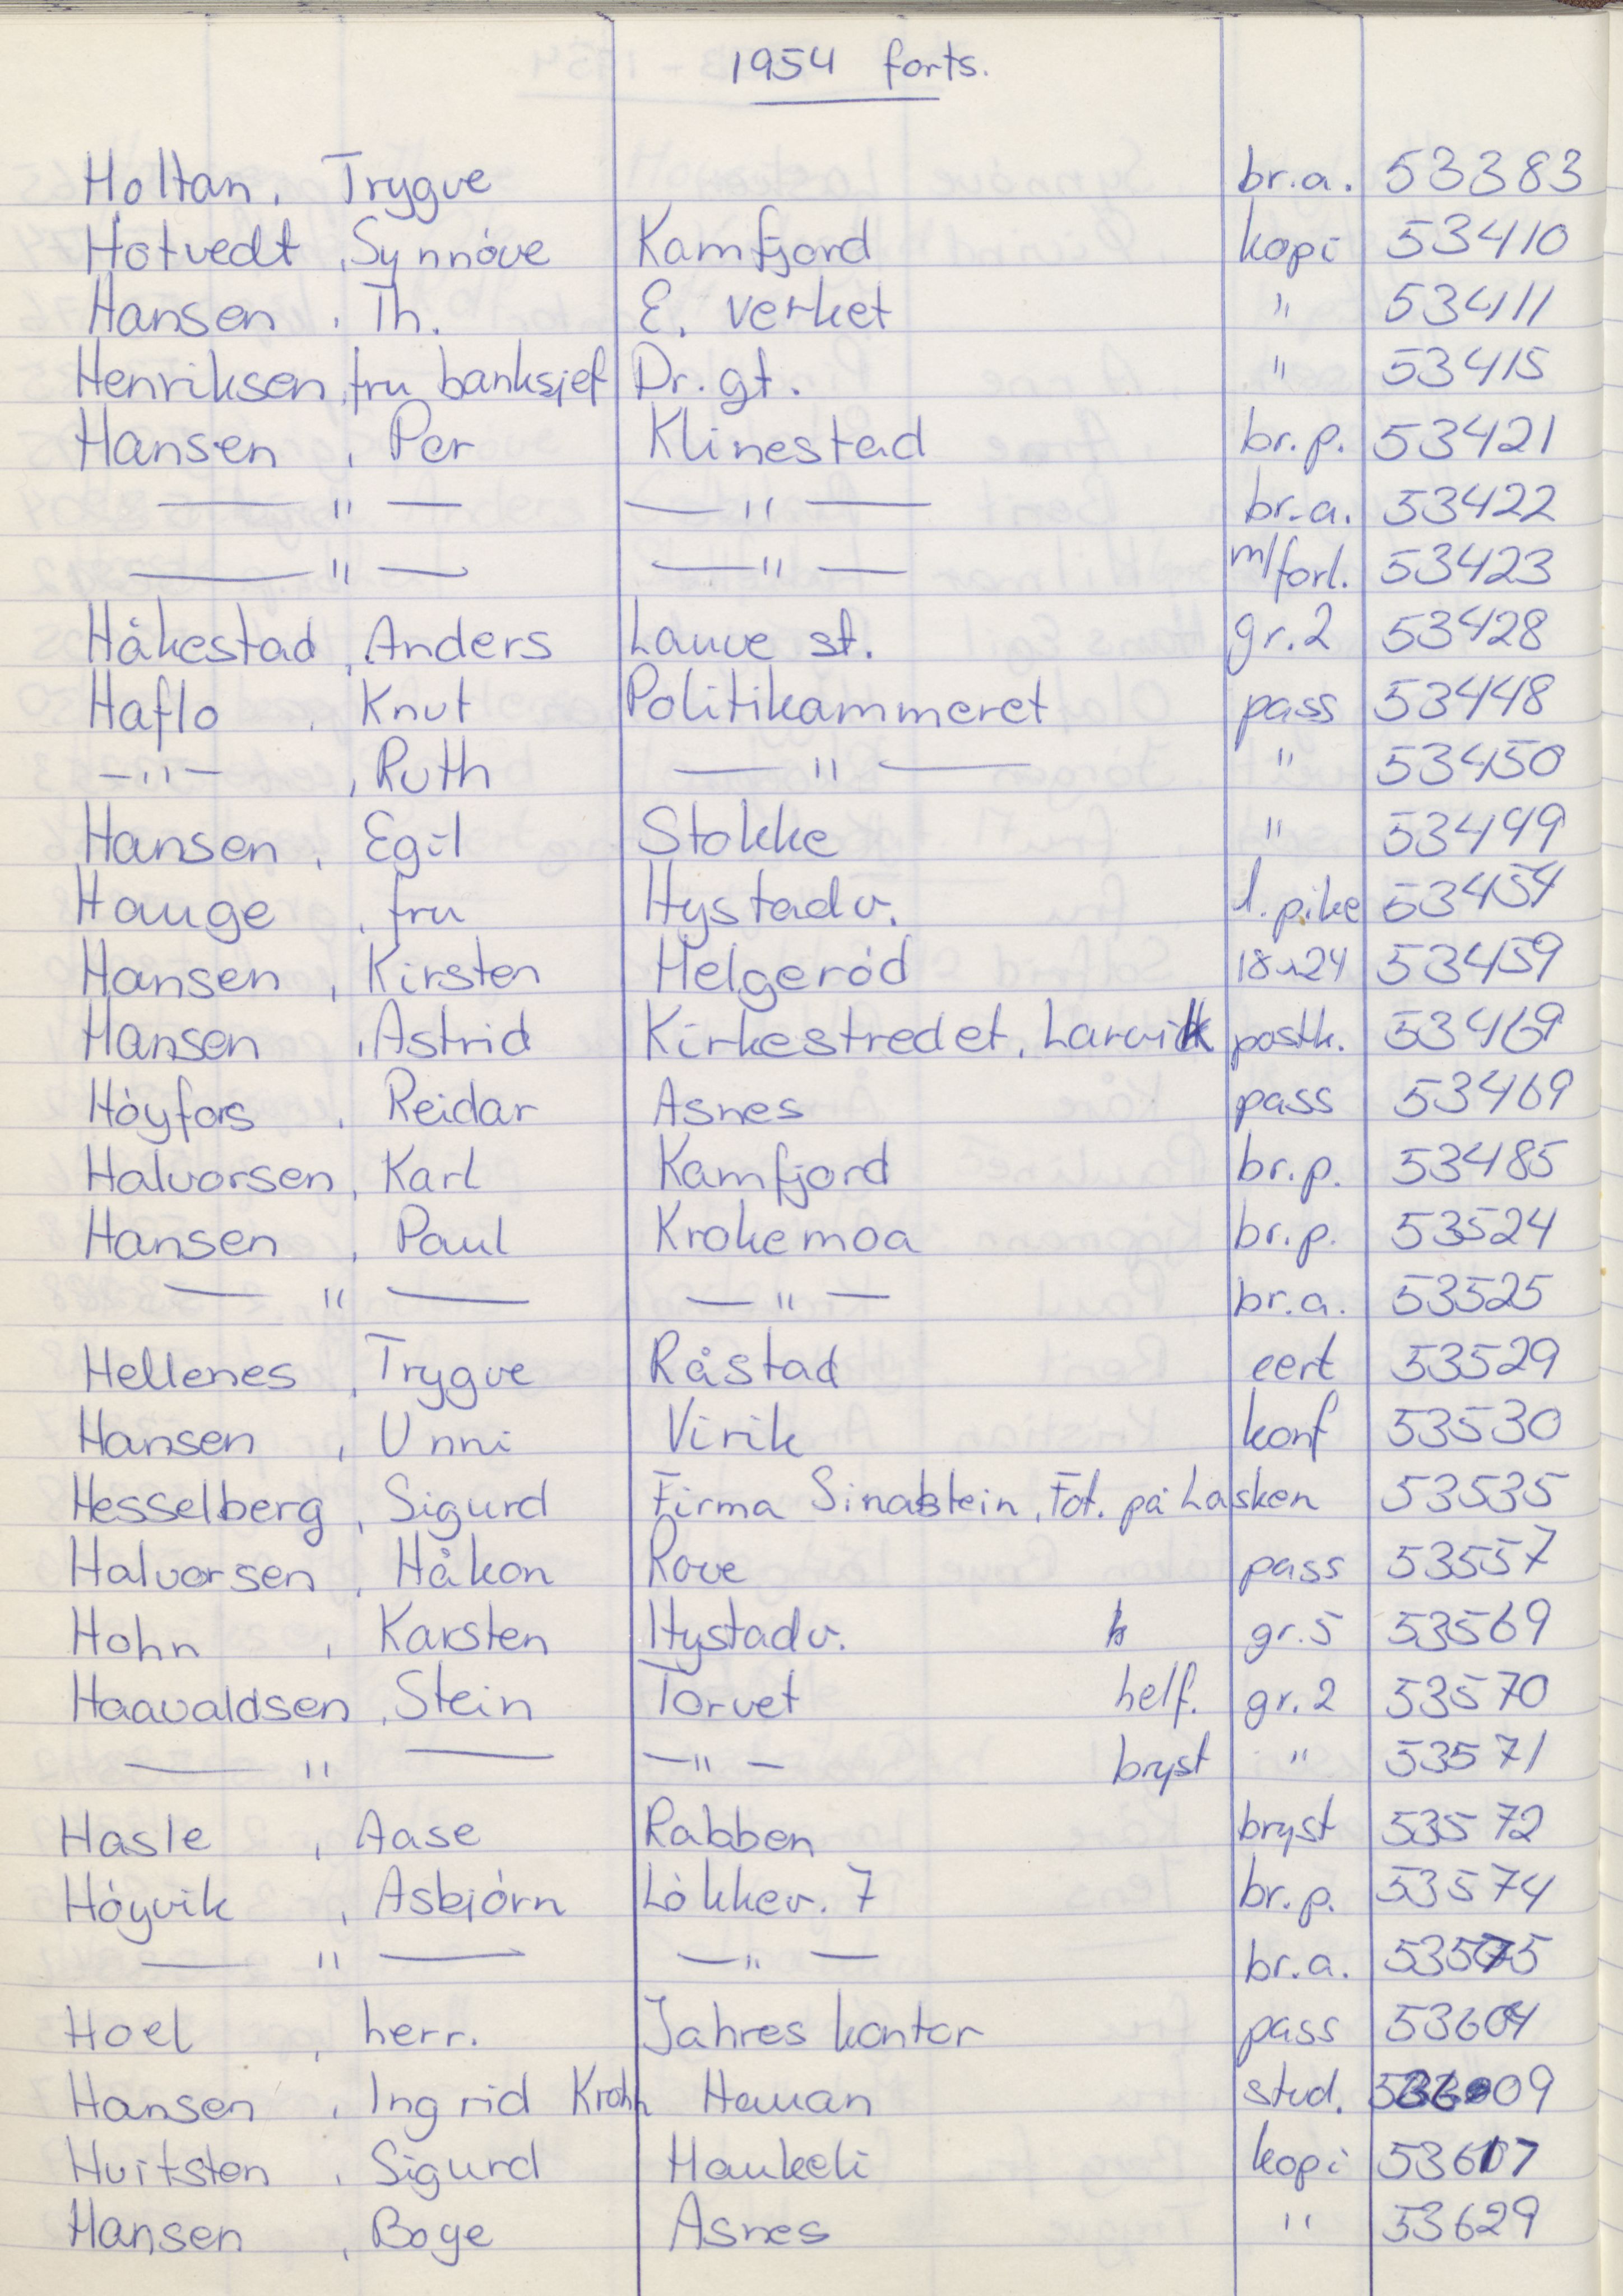 1954 forts.
Holtan, Trygve br.a. 53383
Hotvedt, Synnöve Kamfjord kopi 53410
Hansen, Th. E. verket " 53411
Henriksen, fru banksjef Dr. gt. " 53415
Hansen, Per Klinestad br.p. 53421
— " — — " — br.a. 53422
— " — — " — m/forl. 53423
Håkestad, Anders Lauve st. gr.2 53428
Haflo, Knut Politikammeret pass 53448
— " —, Ruth — " — " 53450
Hansen, Egil Stokke " 53499
Hauge, fru Hystadv. l. pike 53454
Hansen, Kirsten Helgeröd 18x24 53459
Hansen, Astrid Kirkestredet, Larvik postk. 53469
Höyfors, Reidar Asnes pass 53469
Halvorsen, Karl Kamfjord br.p. 53485
Hansen, Paul Krokemoa br.p. 53524
— " — — " — br.a. 53525
Hellenes, Trygve Råstad cert 53529
Hansen, Unni Virik konf 53530
Hesselberg, Sigurd Firma Sinabstein, Fot. på Lasken 53535
Halvorsen, Håkon Rove pass 53557
Hohn, Karsten Hystadv. gr.5 53569
Haavaldsen, Stein Torvet helf. gr.2 53570
— " — — " — bryst " 53571
Hasle, Aase Rabben bryst 53572
Höyvik, Asbjörn Lökkev. 7 br.p. 53574
— " — — " — br.a. 53575
Hoel, herr. Jahres kontor pass 53604
Hansen, Ingrid Krohn Hauan stud. 53609
Hvitsten, Sigurd Haukeli kopi 53617
Hansen, Boge Asnes " 53629